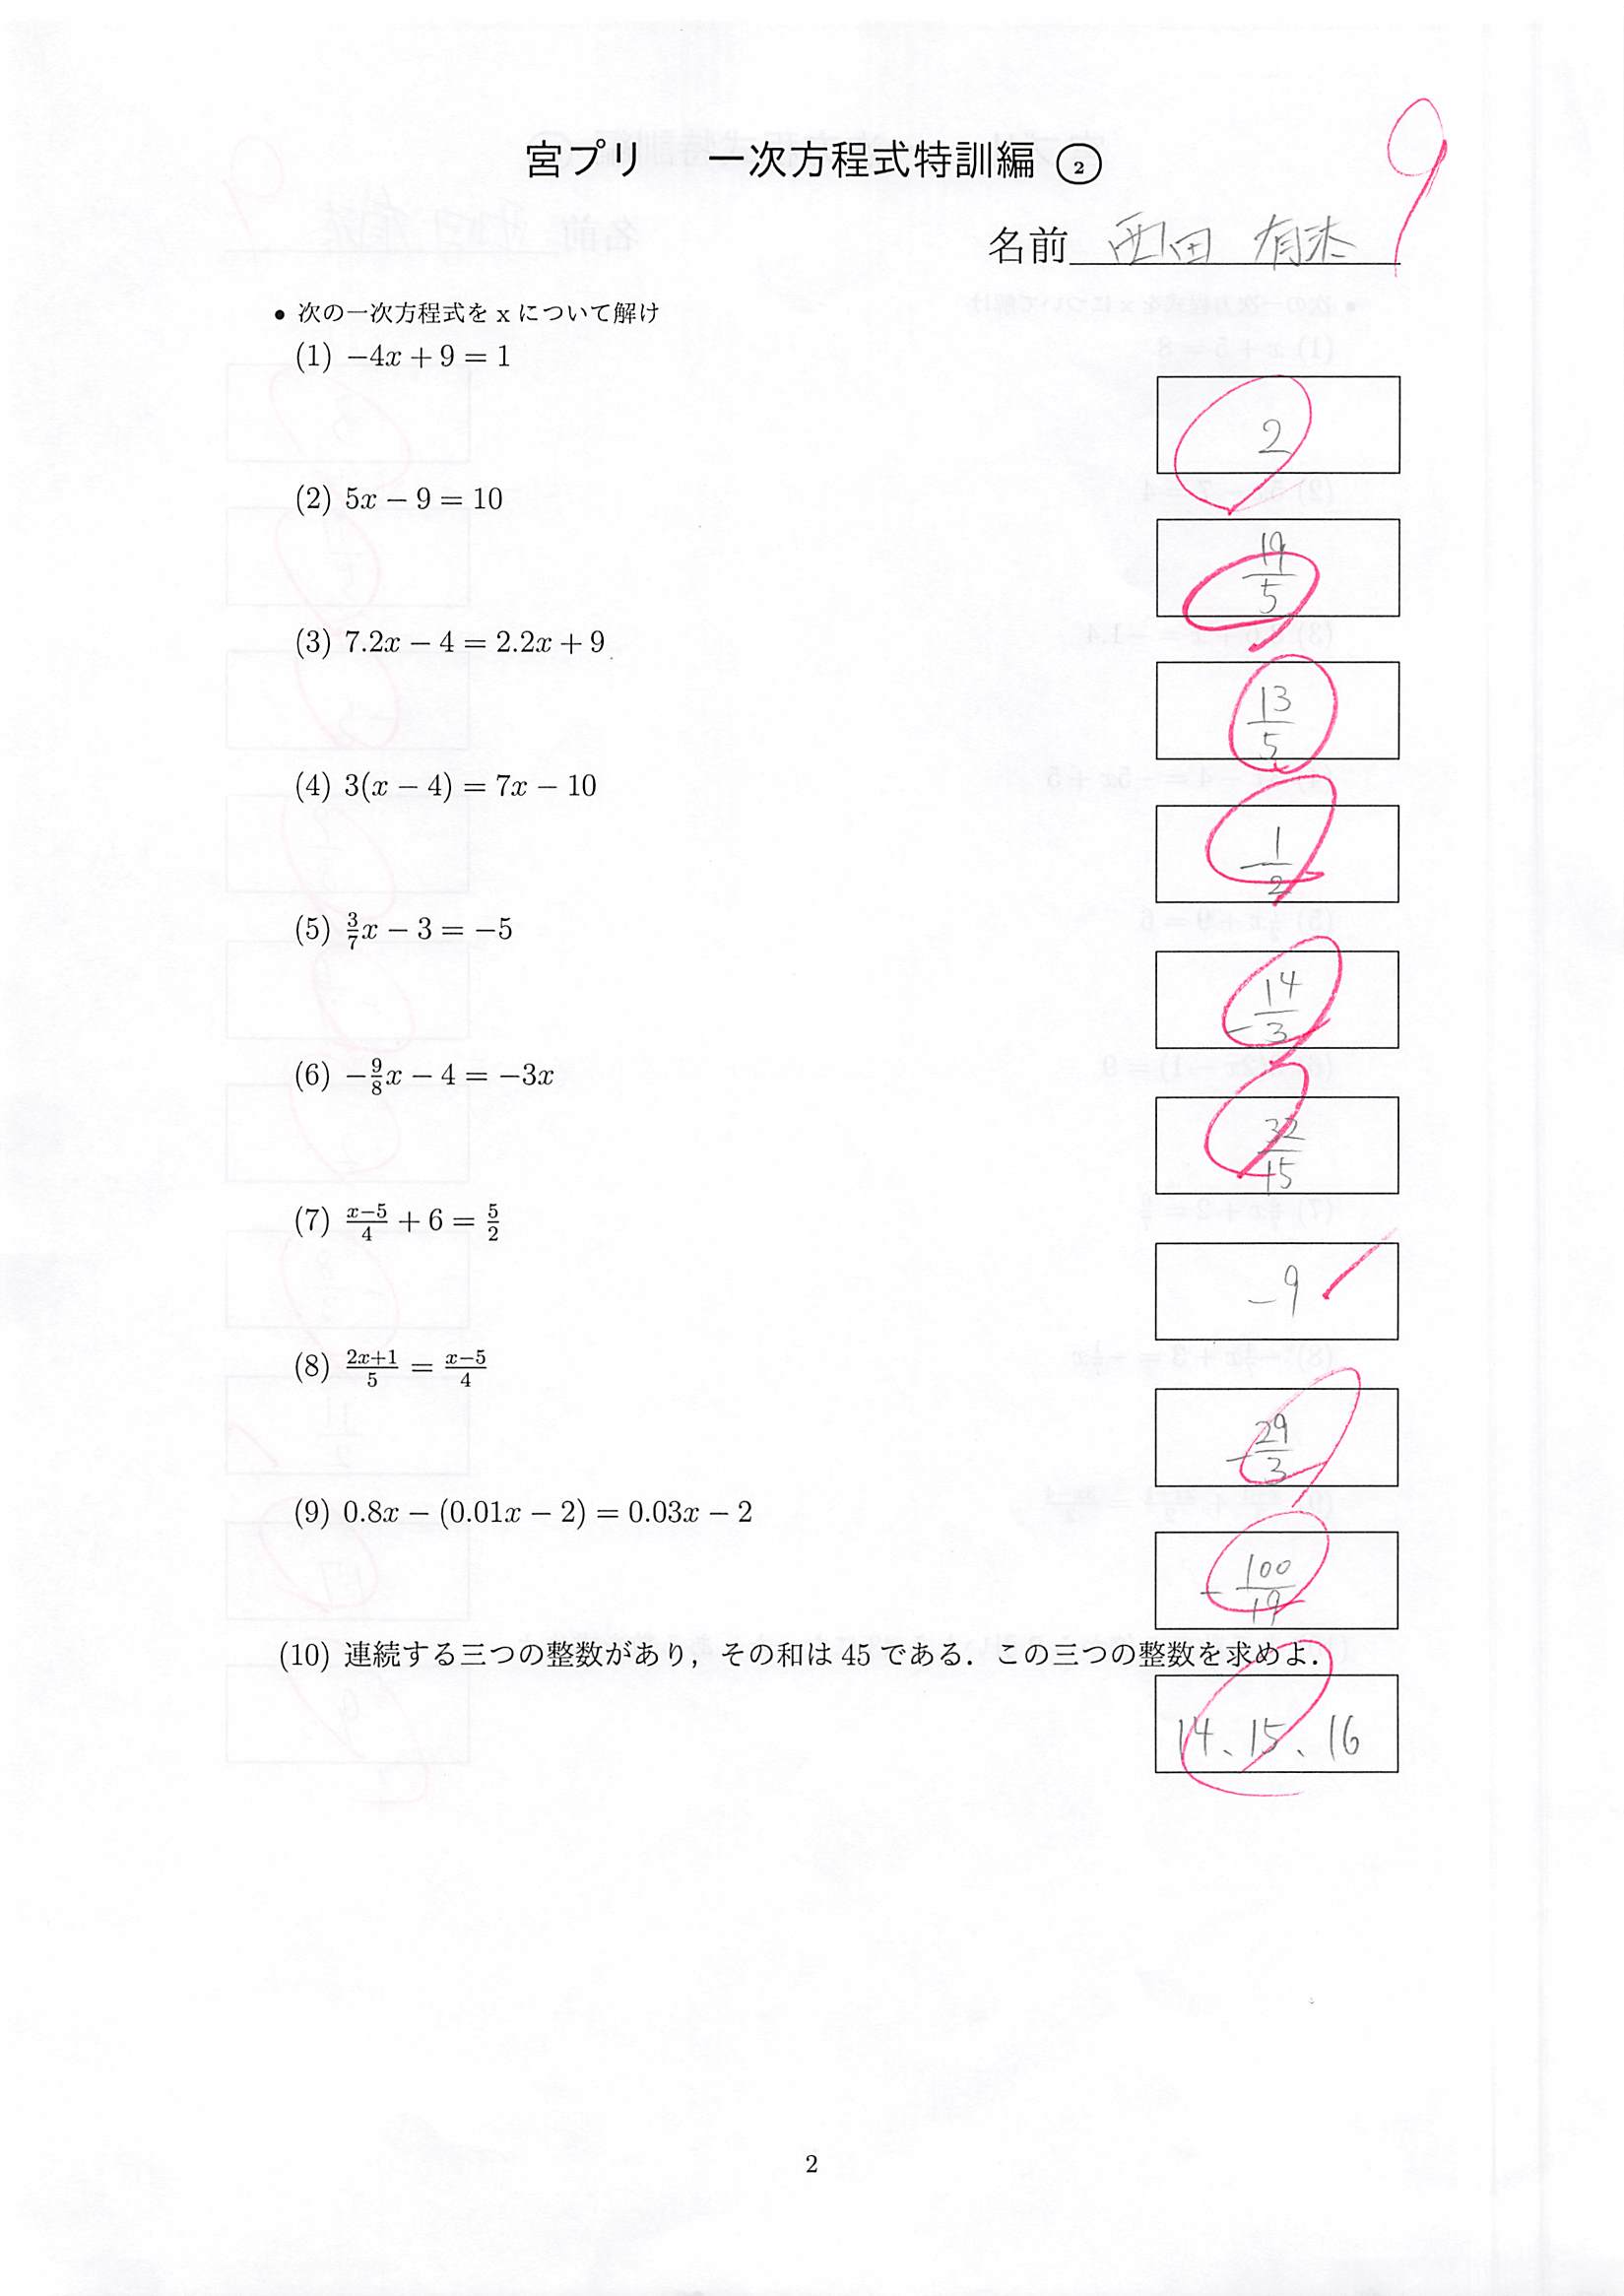 宮プリ 一次方程式特訓編 ②
9
名前 西田 有未
• 次の一次方程式を x について解け
(1) −4x + 9 = 1
2
(2) 5x − 9 = 10
19/5
(3) 7.2x − 4 = 2.2x + 9
13/5
(4) 3(x − 4) = 7x − 10
−1/2
(5) 3/7x − 3 = −5
−14/3
(6) −9/8x − 4 = −3x
32/15
(7) x−5/4 + 6 = 5/2
−9
(8) 2x+1/5 = x−5/4
−29/3
(9) 0.8x − (0.01x − 2) = 0.03x − 2
−100/19
(10) 連続する三つの整数があり，その和は 45 である．この三つの整数を求めよ．
14、15、16
2